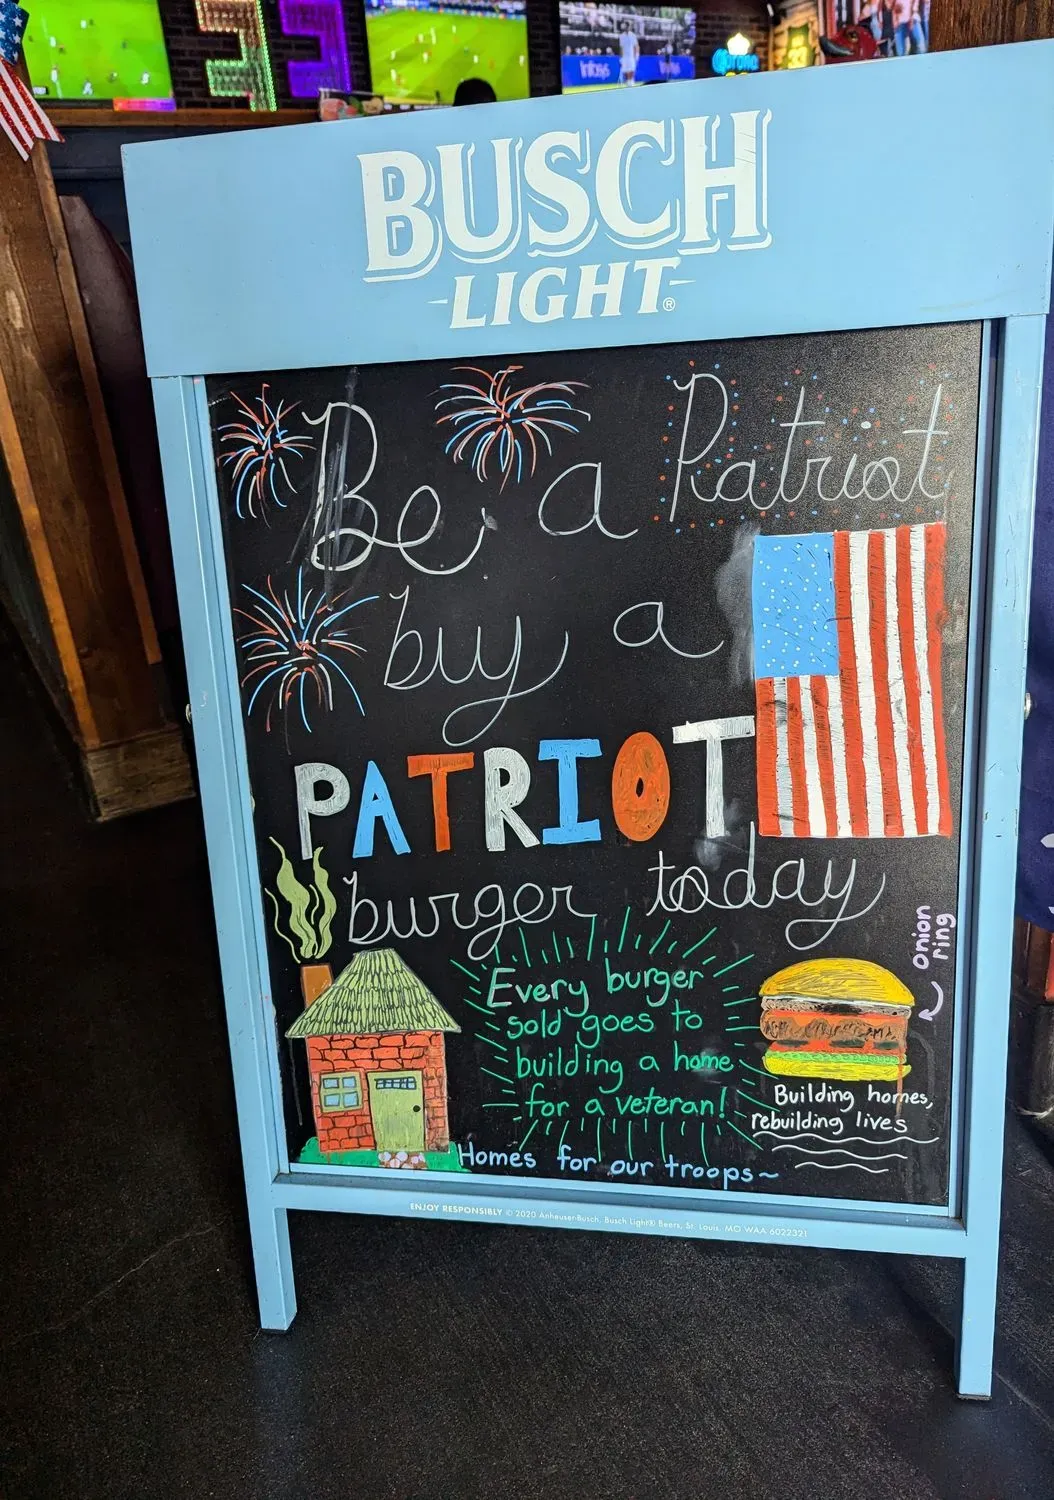 Infosys
Corona
BUSCH
LIGHT®
Be a Patriot
buy a
PATRIOT
burger today
onion
ring
Every burger
sold goes to
building a home
for a veteran!
Building homes,
rebuilding lives
Homes for our troops~
ENJOY RESPONSIBLY © 2020 Anheuser-Busch, Busch Light® Beers, St. Louis, MO WAA 6022321